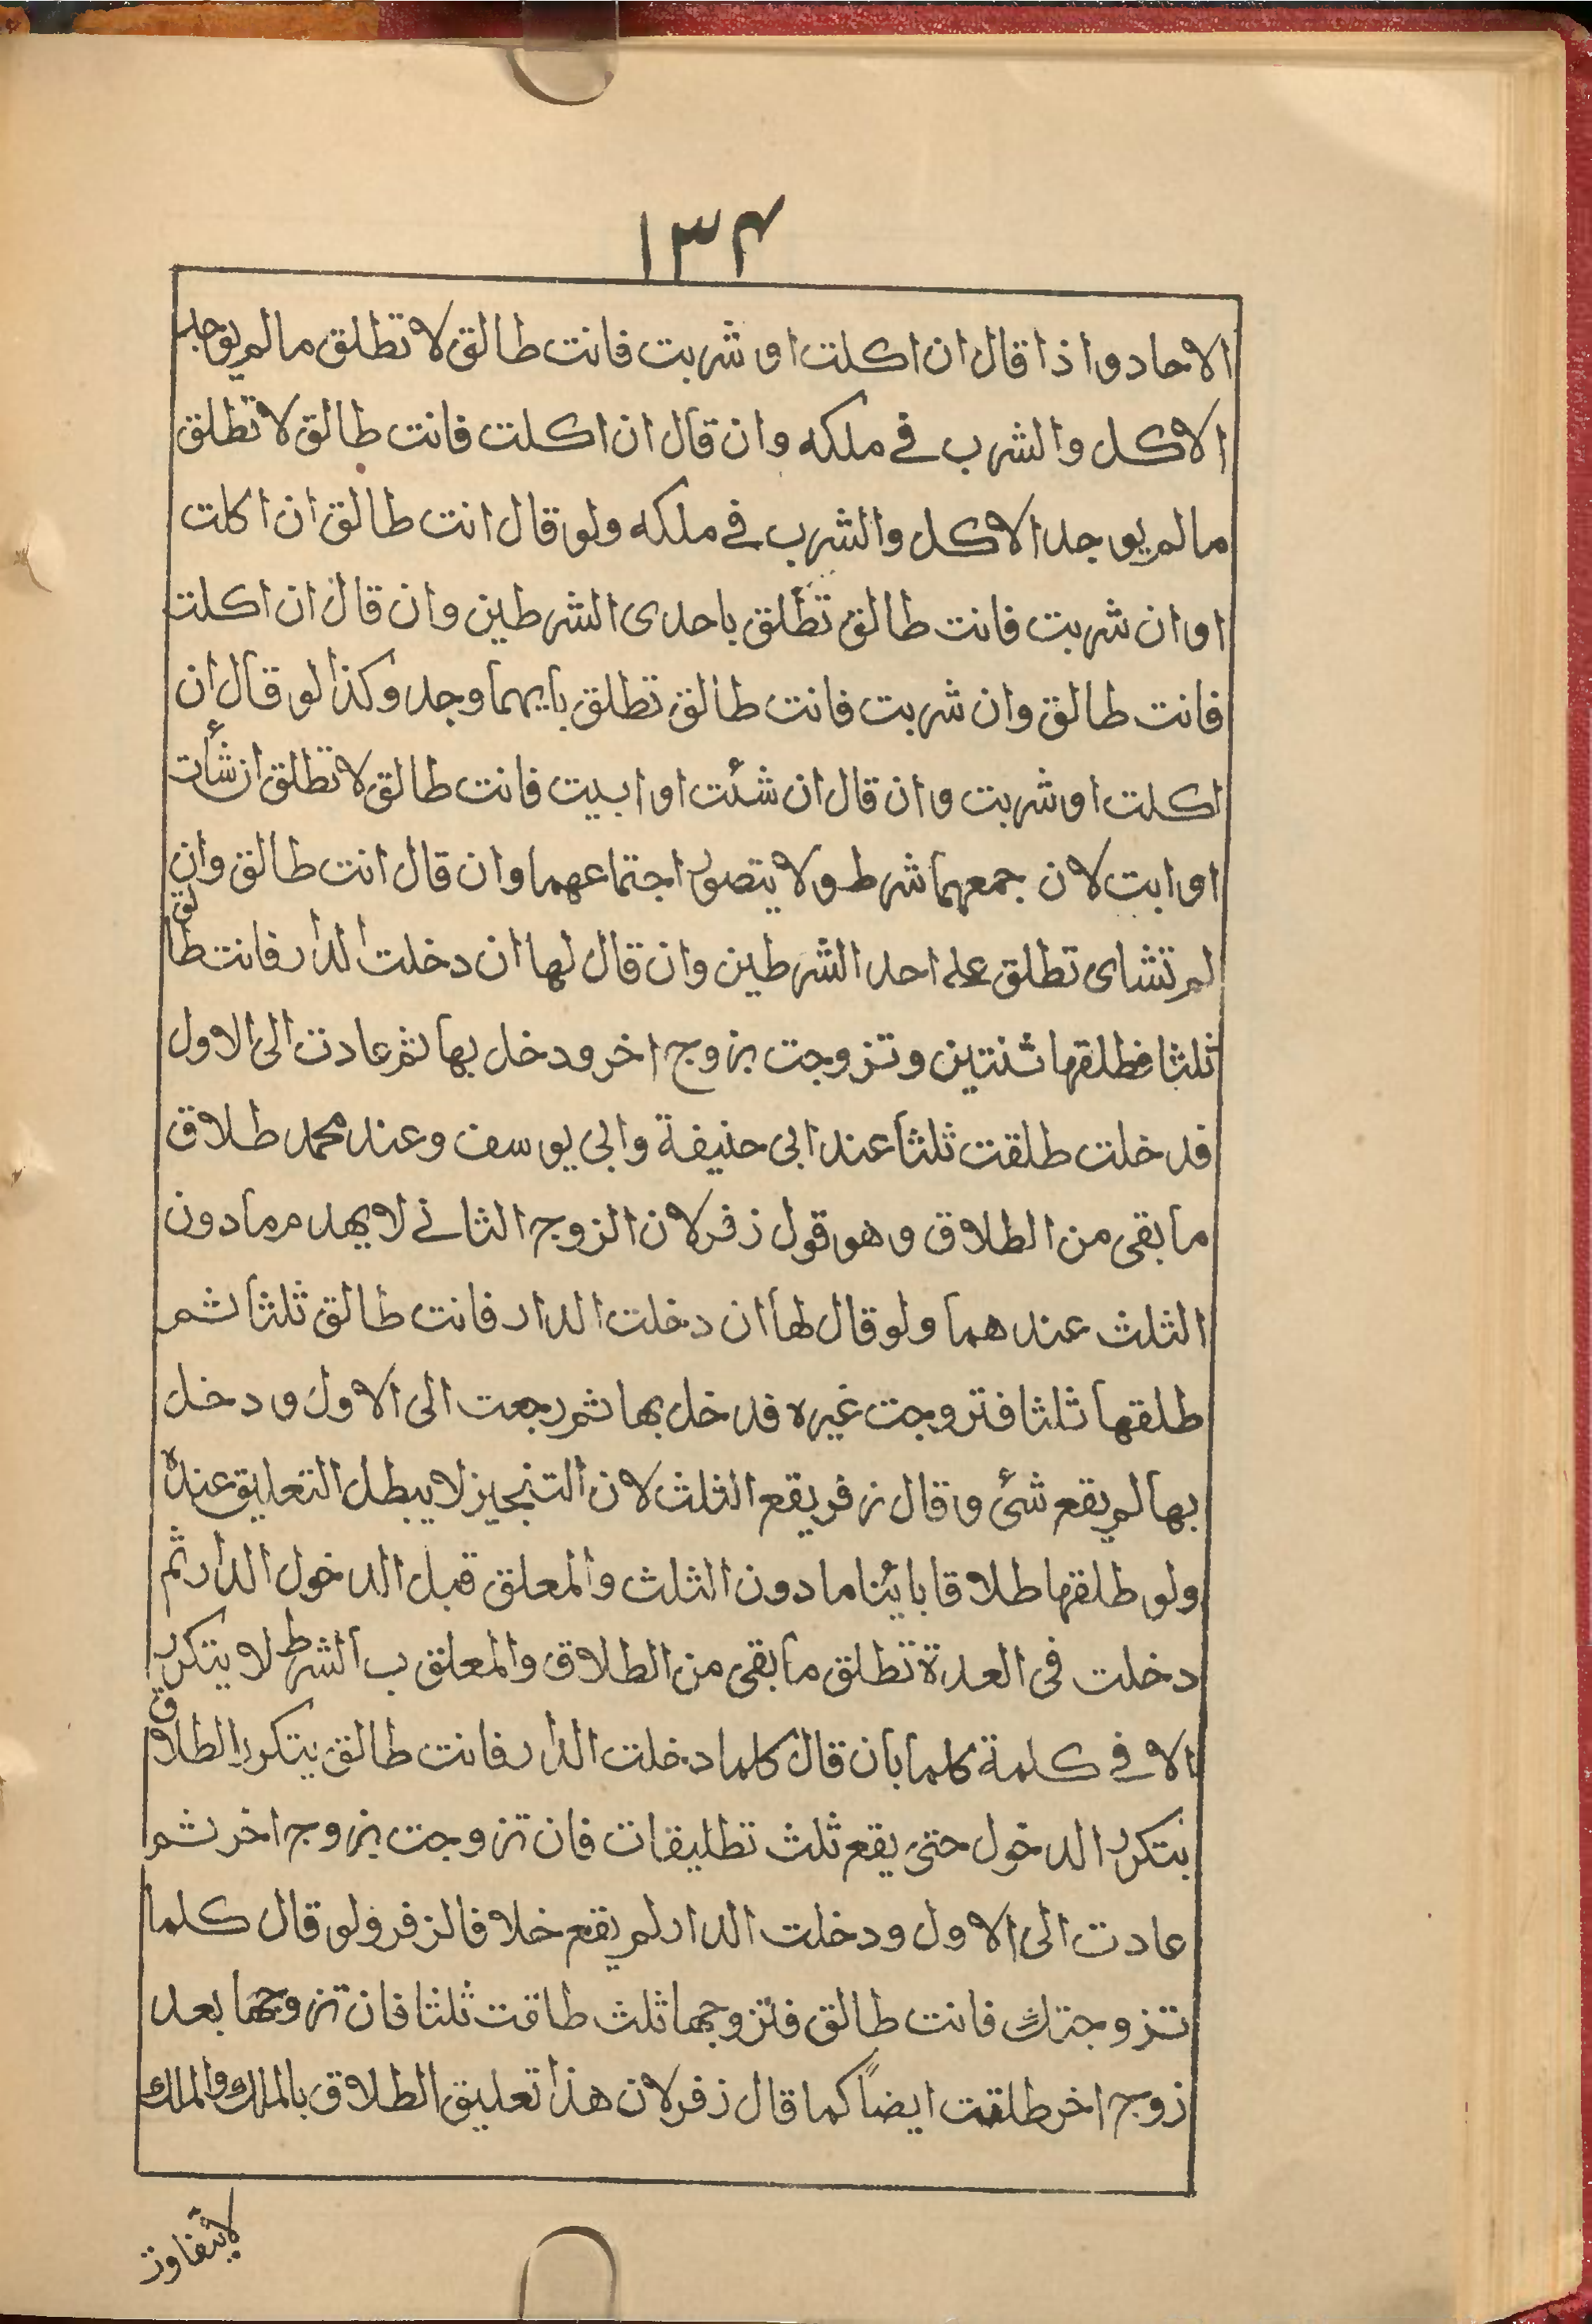 ١٣٤
الاحاد واذا قال ان اكلت او شربت فانت طالق لا تطلق ما لم يوجد
الاكل والشرب في ملكه وان قال ان اكلت فانت طالق لا تطلق
ما لم يوجد الاكل والشرب في ملكه ولو قال انت طالق ان اكلت
او ان شربت فانت طالق تطلق باحدى الشرطين وان قال ان اكلت
فانت طالق وان شربت فانت طالق تطلق بايهما وجد وكذا لو قال ان
اكلت او شربت وان قال ان شئت او ابيت فانت طالق لا تطلق ان شأت
او ابت لان جمعهما شرط ولا يتصور اجتماعهما وان قال انت طالق وان
لم تشاى تطلق على احد الشرطين وان قال لها ان دخلت الدار فانت طالق
ثلثا فطلقها ثنتين وتزوجت بزوج اخر ودخل بها ثم عادت الى الاول
فدخلت طلقت ثلثا عند ابى حنيفة وابى يوسف وعند محمد طلاق
ما بقى من الطلاق وهو قول زفر لان الزوج الثانے لا يهدم ما دون
الثلث عندهما ولو قال لها ان دخلت الدار فانت طالق ثلثا ثم
طلقها ثلثا فتزوجت غيره فدخل بها ثم رجعت الى الاول ودخل
بها لم يقع شئ وقال زفر يقع الثلث لان التنجيز لا يبطل التعليق عنده
ولو طلقها طلاقا بائنا ما دون الثلث والمعلق قبل الدخول الدار ثم
دخلت فى العدة تطلق ما بقى من الطلاق والمعلق ب الشرط لا يتكرر
الا في كلمة كلما بان قال كلما دخلت الدار فانت طالق يتكرر الطلاق
بتكرر الدخول حتى يقع ثلث تطليقات فان تزوجت بزوج اخر ثم
عادت الى الاول ودخلت الدار لم يقع خلافا لزفر ولو قال كلما
تزوجتك فانت طالق فتزوجها ثلث طاقت ثلثا فان تزوجها بعد
زوج اخر طلقت ايضاً كما قال زفر لان هذا تعليق الطلاق بالملك والملك
لايتفاوت